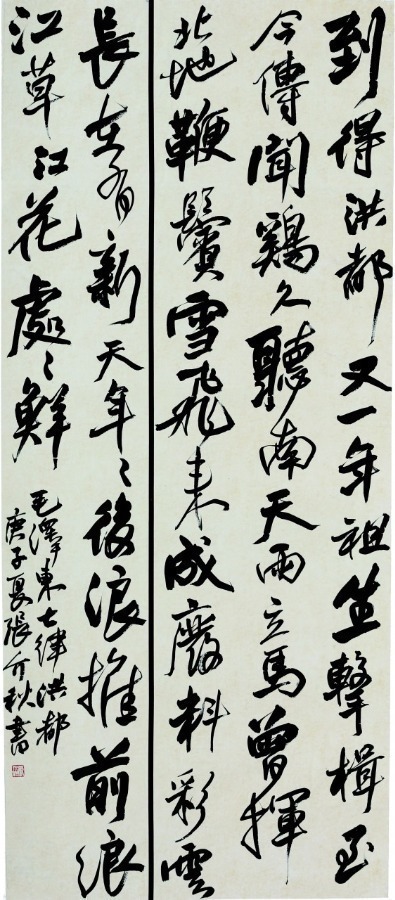 到得洪都又一年祖生擊楫至
今傳聞鷄久聽南天雨立馬曾揮
北地鞭鬢雪飛来成廢料彩雲
長在有新天年〻後浪推前浪
江草江花處〻鮮
毛澤東七律洪都
庚子夏張介秋書